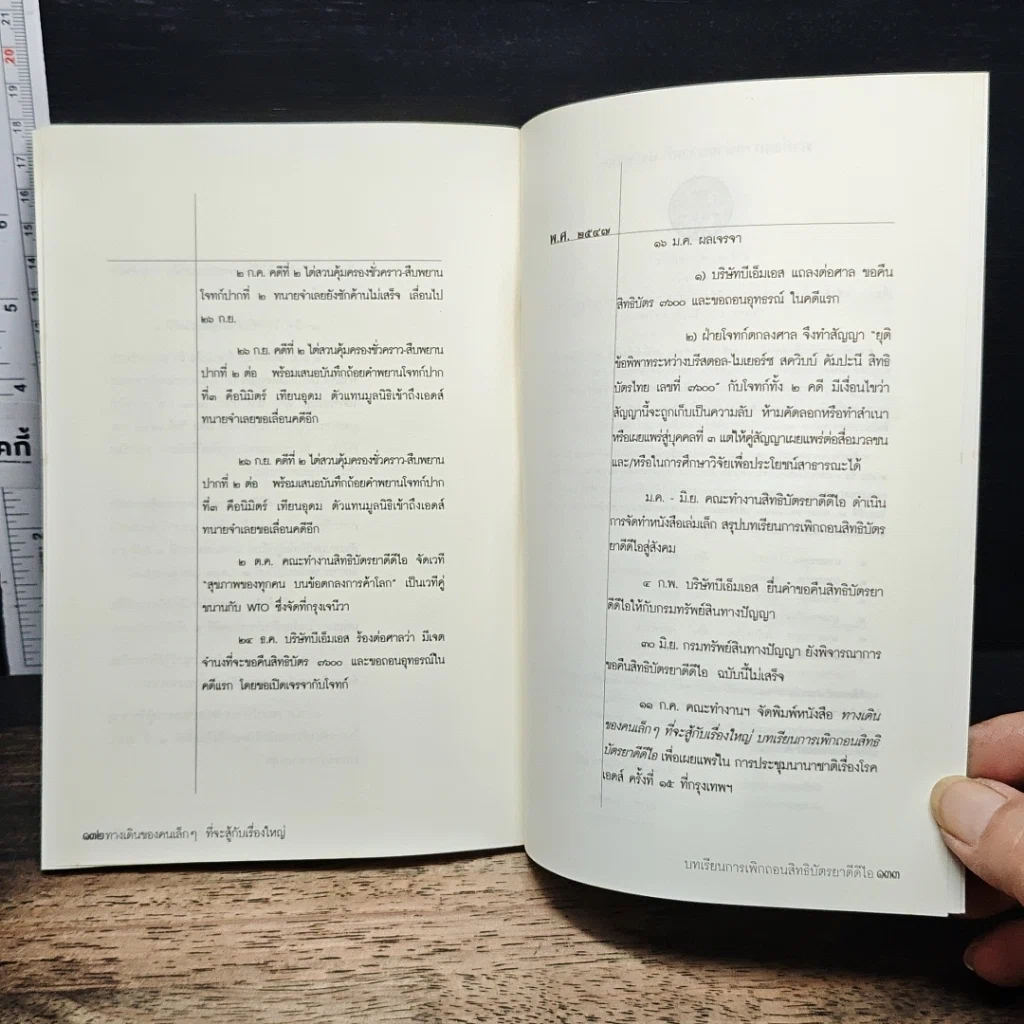 ๒ ก.ค. คดีที่ ๒ ไต่สวนคุ้มครองชั่วคราว-สืบพยาน
โจทก์ปากที่ ๒ ทนายจำเลยยังซักค้านไม่เสร็จ เลื่อนไป
๒๖ ก.ย.
๒๖ ก.ย. คดีที่ ๒ ไต่สวนคุ้มครองชั่วคราว-สืบพยาน
ปากที่ ๒ ต่อ พร้อมเสนอบันทึกถ้อยคำพยานโจทก์ปาก
ที่๓ คือนิมิตร์ เทียนอุดม ตัวแทนมูลนิธิเข้าถึงเอดส์
ทนายจำเลยขอเลื่อนคดีอีก
๒๖ ก.ย. คดีที่ ๒ ไต่สวนคุ้มครองชั่วคราว-สืบพยาน
ปากที่ ๒ ต่อ พร้อมเสนอบันทึกถ้อยคำพยานโจทก์ปาก
ที่๓ คือนิมิตร์ เทียนอุดม ตัวแทนมูลนิธิเข้าถึงเอดส์
ทนายจำเลยขอเลื่อนคดีอีก
๒ ต.ค. คณะทำงานสิทธิบัตรยาดีดีไอ จัดเวที
"สุขภาพของทุกคน บนข้อตกลงการค้าโลก" เป็นเวทีคู่
ขนานกับ WTO ซึ่งจัดที่กรุงเจนีวา
๒๔ ธ.ค. บริษัทบีเอ็มเอส ร้องต่อศาลว่า มีเจต
จำนงที่จะขอคืนสิทธิบัตร ๗๖๐๐ และขอถอนอุทธรณ์ใน
คดีแรก โดยขอเปิดเจรจากับโจทก์
๑๓๒ ทางเดินของคนเล็กๆ ที่จะสู้กับเรื่องใหญ่
พ.ศ. ๒๕๔๗
๑๖ ม.ค. ผลเจรจา
๑) บริษัทบีเอ็มเอส แถลงต่อศาล ขอคืน
สิทธิบัตร ๗๖๐๐ และขอถอนอุทธรณ์ ในคดีแรก
๒) ฝ่ายโจทก์ตกลงศาล จึงทำสัญญา "ยุติ
ข้อพิพาทระหว่างบริสตอล-ไมเยอร์ซ สควิบบ์ คัมปะนี สิทธิ
บัตรไทย เลขที่ ๗๖๐๐" กับโจทก์ทั้ง ๒ คดี มีเงื่อนไขว่า
สัญญานี้จะถูกเก็บเป็นความลับ ห้ามคัดลอกหรือทำสำเนา
หรือเผยแพร่สู่บุคคลที่ ๓ แต่ให้คู่สัญญาเผยแพร่ต่อสื่อมวลชน
และ/หรือในการศึกษาวิจัยเพื่อประโยชน์สาธารณะได้
ม.ค. - มิ.ย. คณะทำงานสิทธิบัตรยาดีดีไอ ดำเนิน
การจัดทำหนังสือเล่มเล็ก สรุปบทเรียนการเพิกถอนสิทธิบัตร
ยาดีดีไอสู่สังคม
๔ ก.พ. บริษัทบีเอ็มเอส ยื่นคำขอคืนสิทธิบัตรยา
ดีดีไอให้กับกรมทรัพย์สินทางปัญญา
๓๐ มิ.ย. กรมทรัพย์สินทางปัญญา ยังพิจารณาการ
ขอคืนสิทธิบัตรยาดีดีไอ ฉบับนี้ไม่เสร็จ
๑๑ ก.ค. คณะทำงานฯ จัดพิมพ์หนังสือ ทางเดิน
ของคนเล็กๆ ที่จะสู้กับเรื่องใหญ่ บทเรียนการเพิกถอนสิทธิ
บัตรยาดีดีไอ เพื่อเผยแพร่ใน การประชุมนานาชาติเรื่องโรค
เอดส์ ครั้งที่ ๑๕ ที่กรุงเทพฯ
บทเรียนการเพิกถอนสิทธิบัตรยาดีดีไอ ๑๓๓